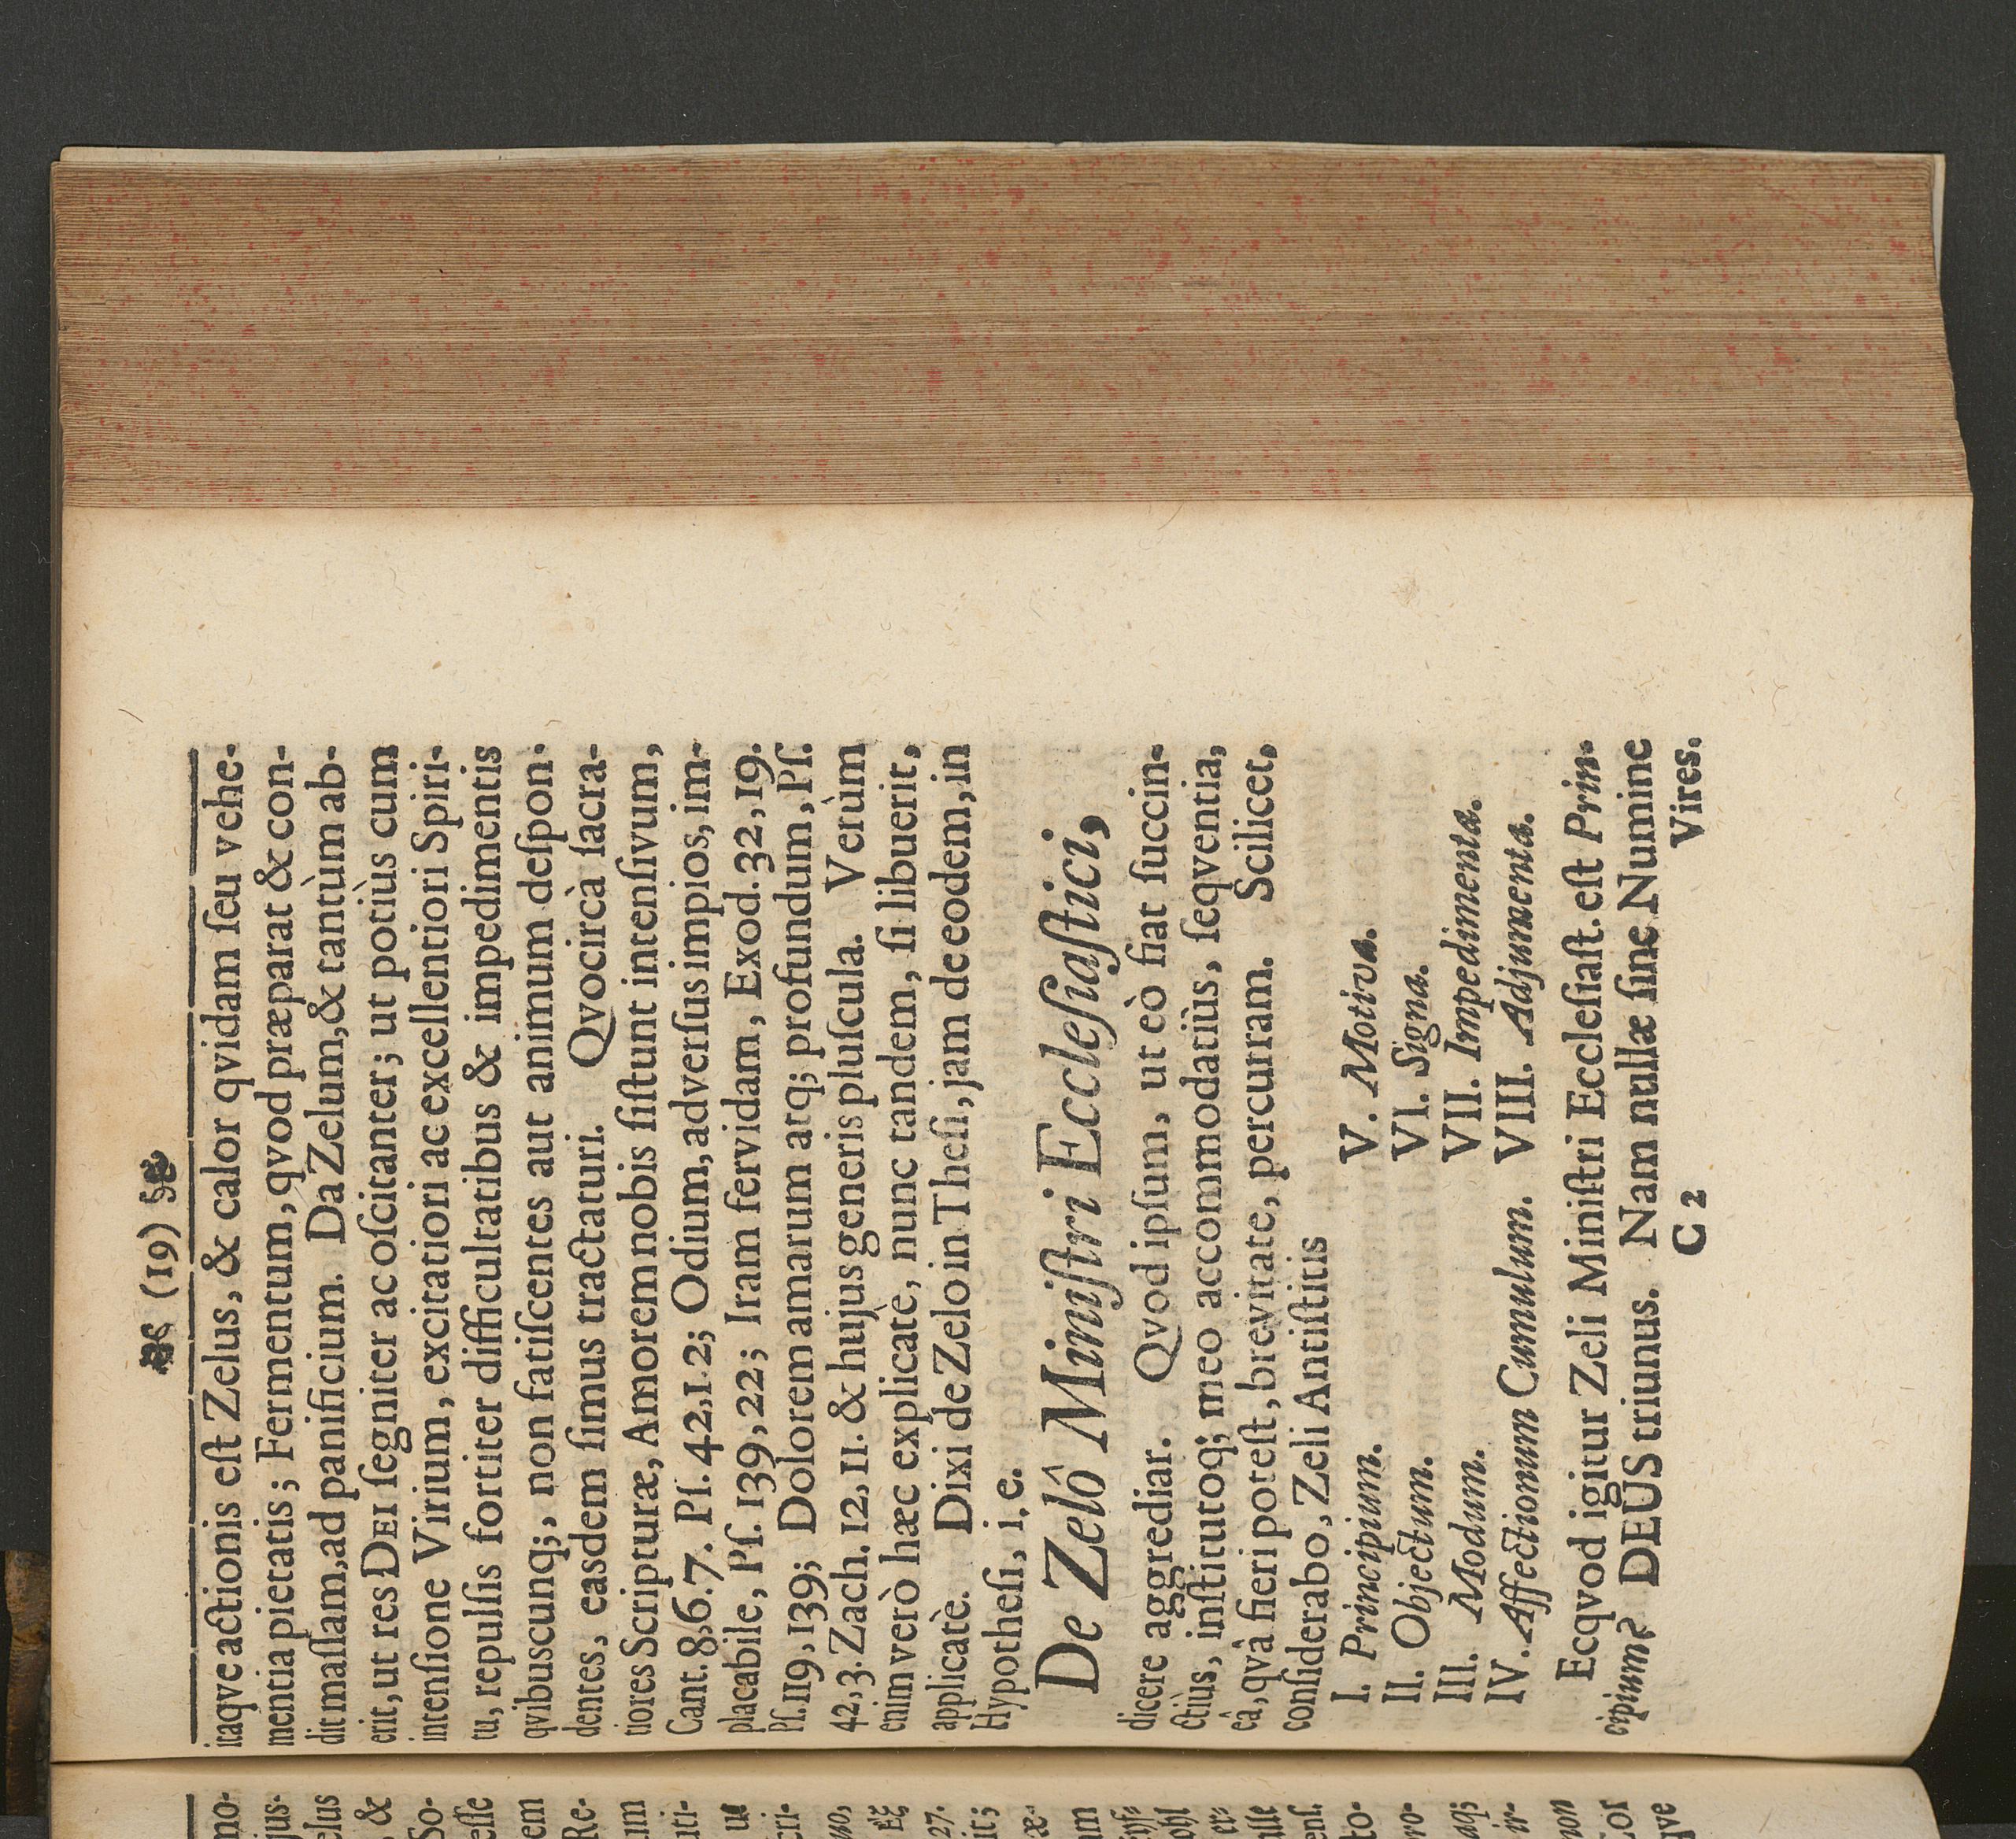 (19)
itaqve actionis eſt Zelus, & calor qvidam ſeu vehe-
mentia pietatis; Fermentum, qvod præparat & con-
dit maſſam, ad panificium. Da Zelum, & tantùm ab-
erit, ut res DEI ſegniter ac oſcitanter; ut potiùs cum
intenſione Virium, excitatiori ac excellentiori Spiri-
tu, repulſis fortiter difficultatibus & impedimentis
qvibuscunq;, non fatiſcentes aut animum deſpon-
dentes, easdem ſimus tractaturi. Qvocircà ſacra-
tiores Scripturæ, Amorem nobis ſiſtunt intenſivum,
Cant. 8,6.7. Pſ. 42,1.2; Odium, adverſus impios, im-
placabile, Pſ. 139, 22; Iram fervidam, Exod. 32, 19.
Pſ. 119, 139; Dolorem amarum atq; profundum, Pſ.
42, 3. Zach. 12, 11. & hujus generis pluſcula. Verùm
enim verò hæc explicate, nunc tandem, ſi libuerit,
applicatè. Dixi de Zelo in Theſi, jam de eodem, in
Hypotheſi, i. e.
De Zelô Miniſtri Eccleſiaſtici,
dicere aggrediar. Qvod ipſum, ut eò fiat ſuccin-
ctiùs, inſtitutoq; meo accommodatiùs, ſeqventia,
eâ, qvâ fieri poteſt, brevitate, percurram. Scilicet,
conſiderabo, Zeli Antiſtitis
I. Principium. V. Motiva.
II. Objectum. VI. Signa.
III. Modum. VII. Impedimenta.
IV. Affectionum Cumulum. VIII. Adjumenta.
Ecqvod igitur Zeli Miniſtri Eccleſiaſt. eſt Prin-
cipium? DEUS triunus. Nam nullæ ſine Numine
C 2 Vires.